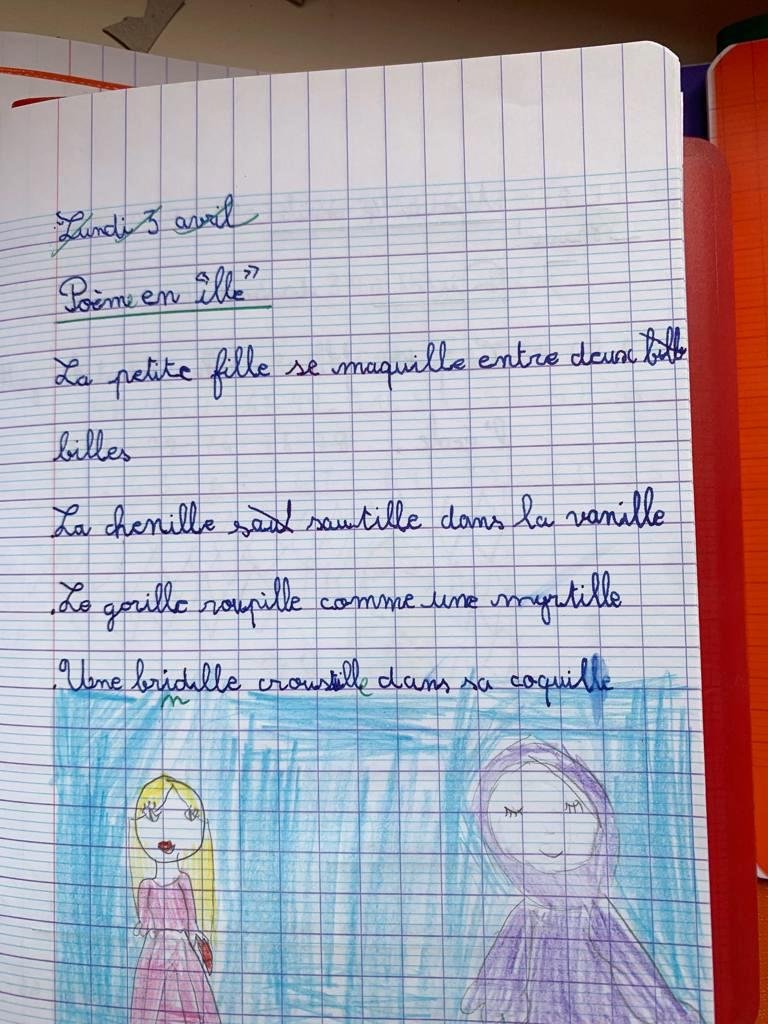 Lundi 3 avril
Poème en "ille"
La petite fille se maquille entre deux bille
billes
La chenille saut sautille dans la vanille
.Le gorille roupille comme une myrtille
.Une bridille croustille dans sa coquille
n